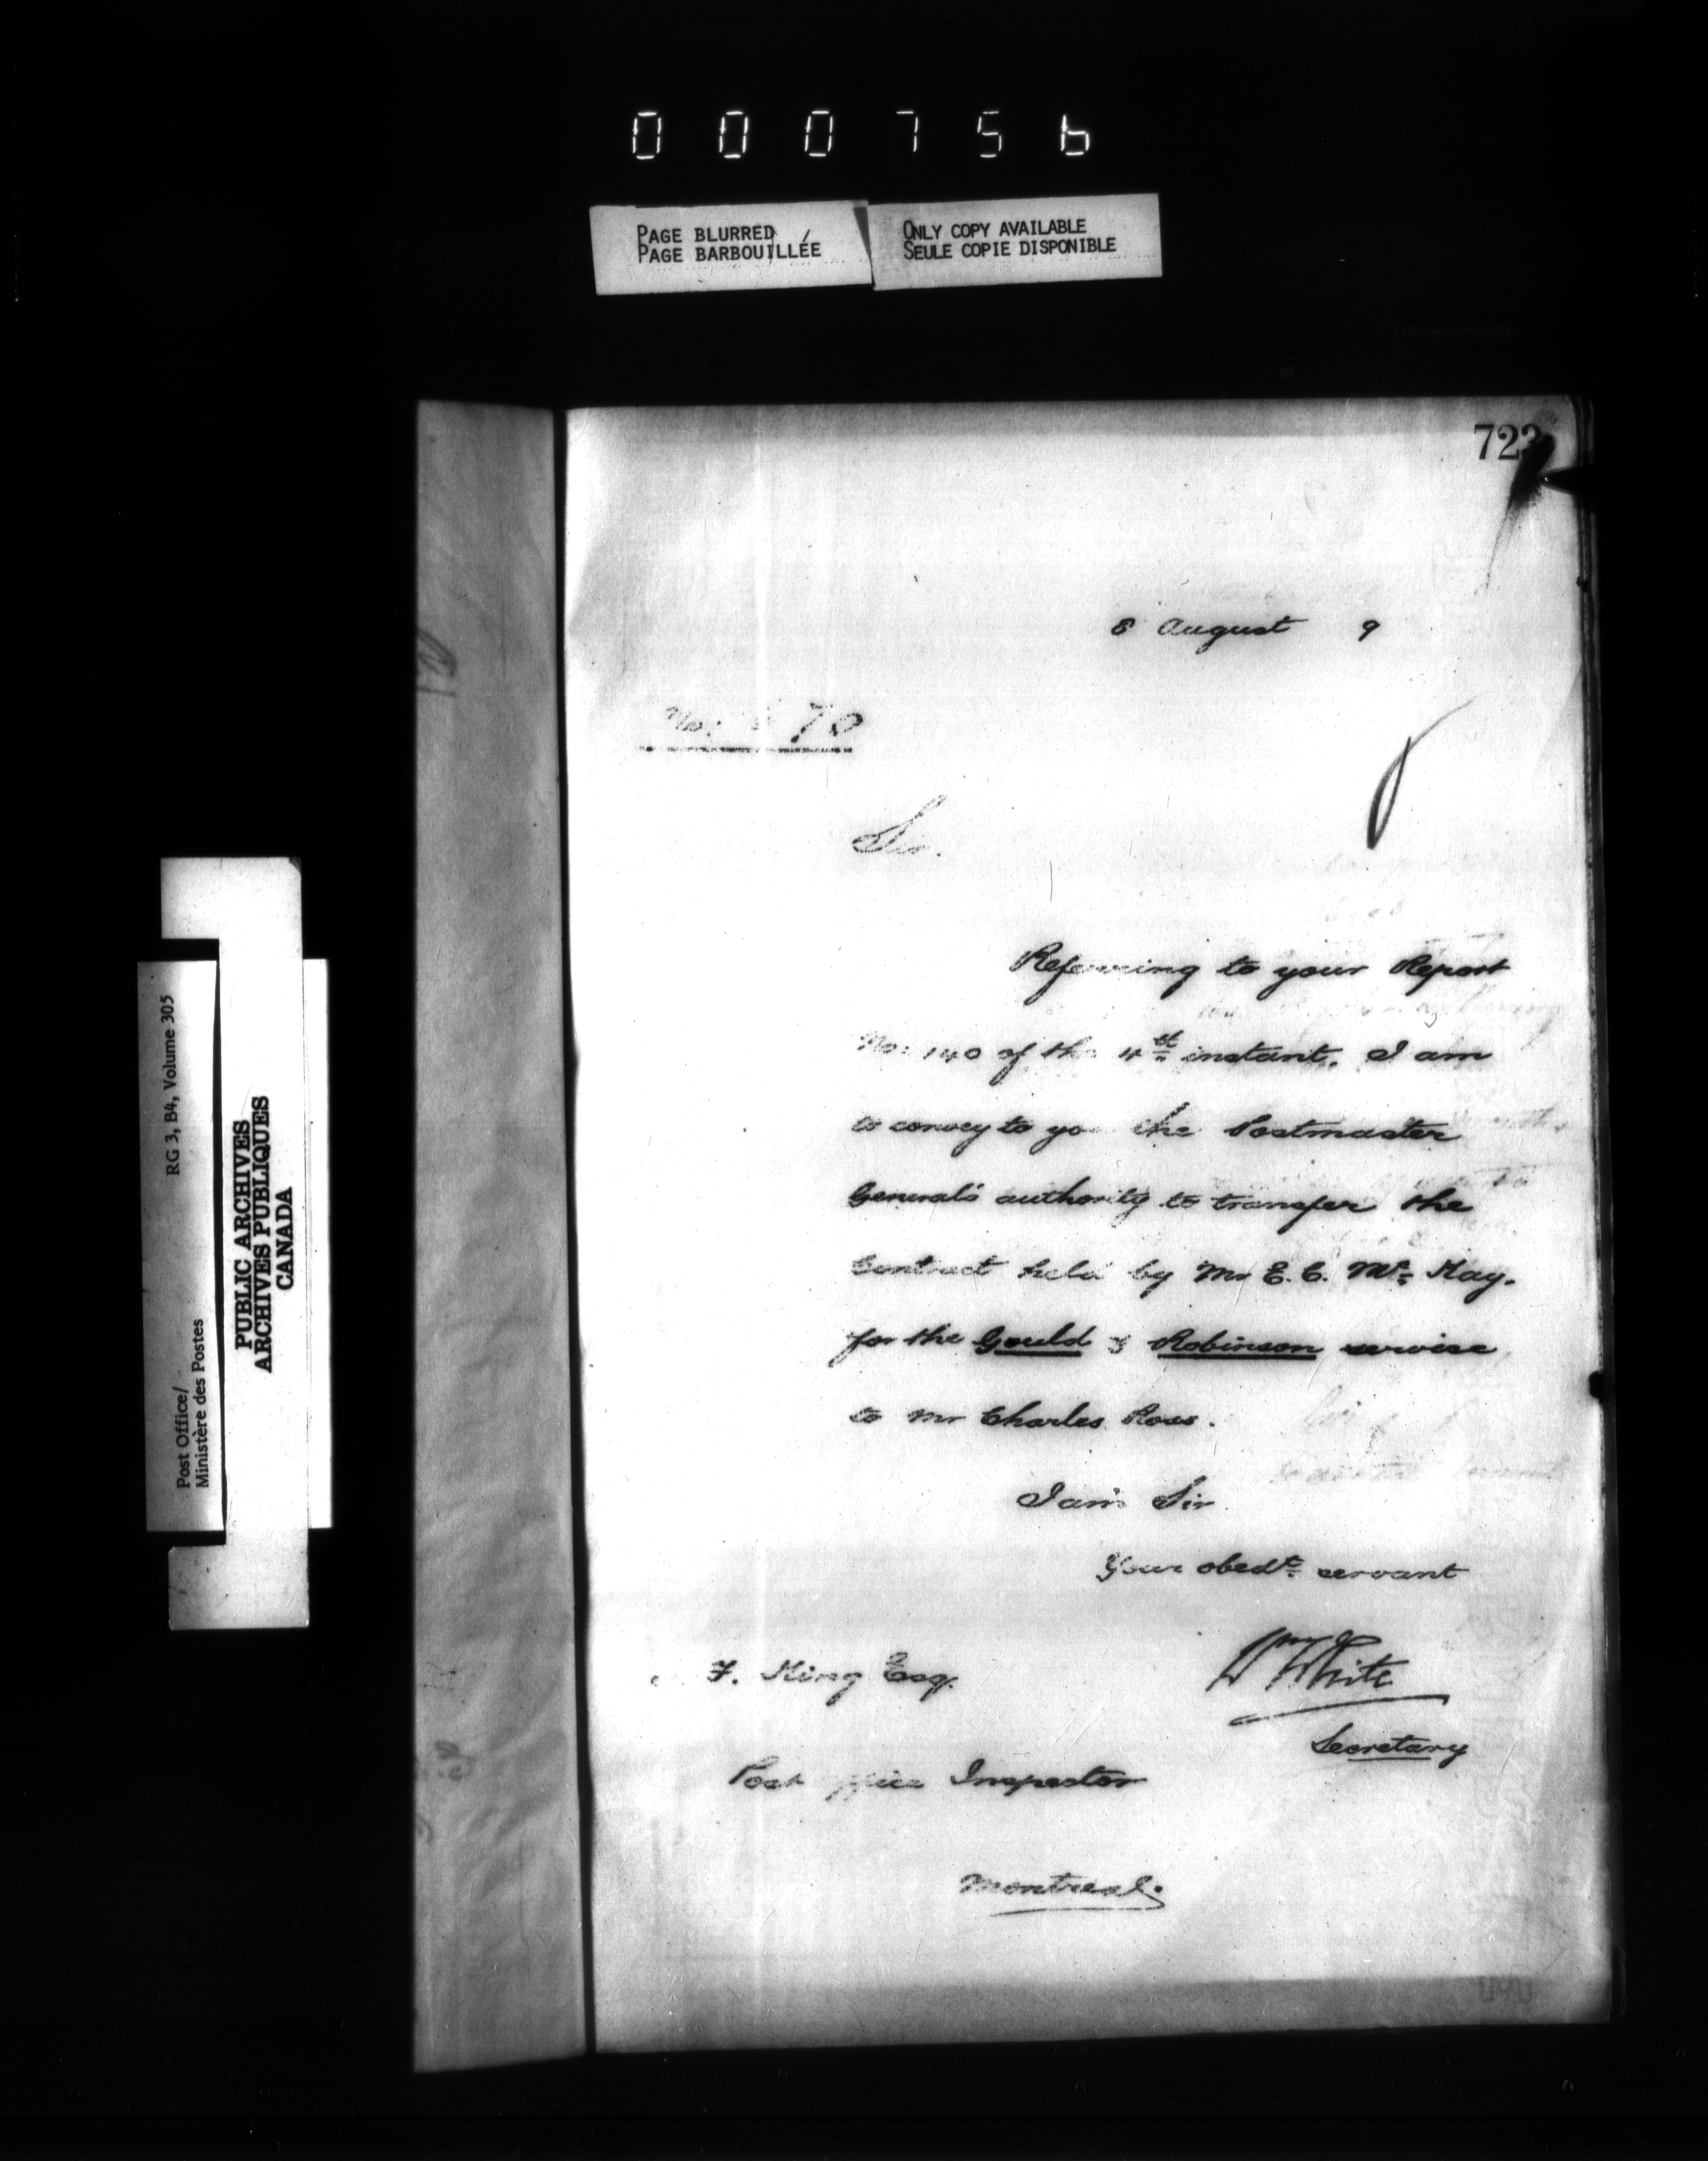 000756
PAGE BLURRED
PAGE BARBOUILLÉE
ONLY COPY AVAILABLE
SEULE COPIE DISPONIBLE
RG 3, B4, Volume 305
Post Office/
Ministère des Postes
PUBLIC ARCHIVES
ARCHIVES PUBLIQUES
CANADA
723
8 August 9
No: 70
Sir.
Referring to your Report
No: 140 of the 4th instant. I am
to convey to you the Postmaster
General's authority to transfer the
Contract held by Mr E. C. Mc Kay.
for the Gould & Robinson service
to Mr Charles Ross.
I am Sir
Your obedt servant
Wm White
Secretary
F. King Esq.
Post Office Inspector
Montreal.